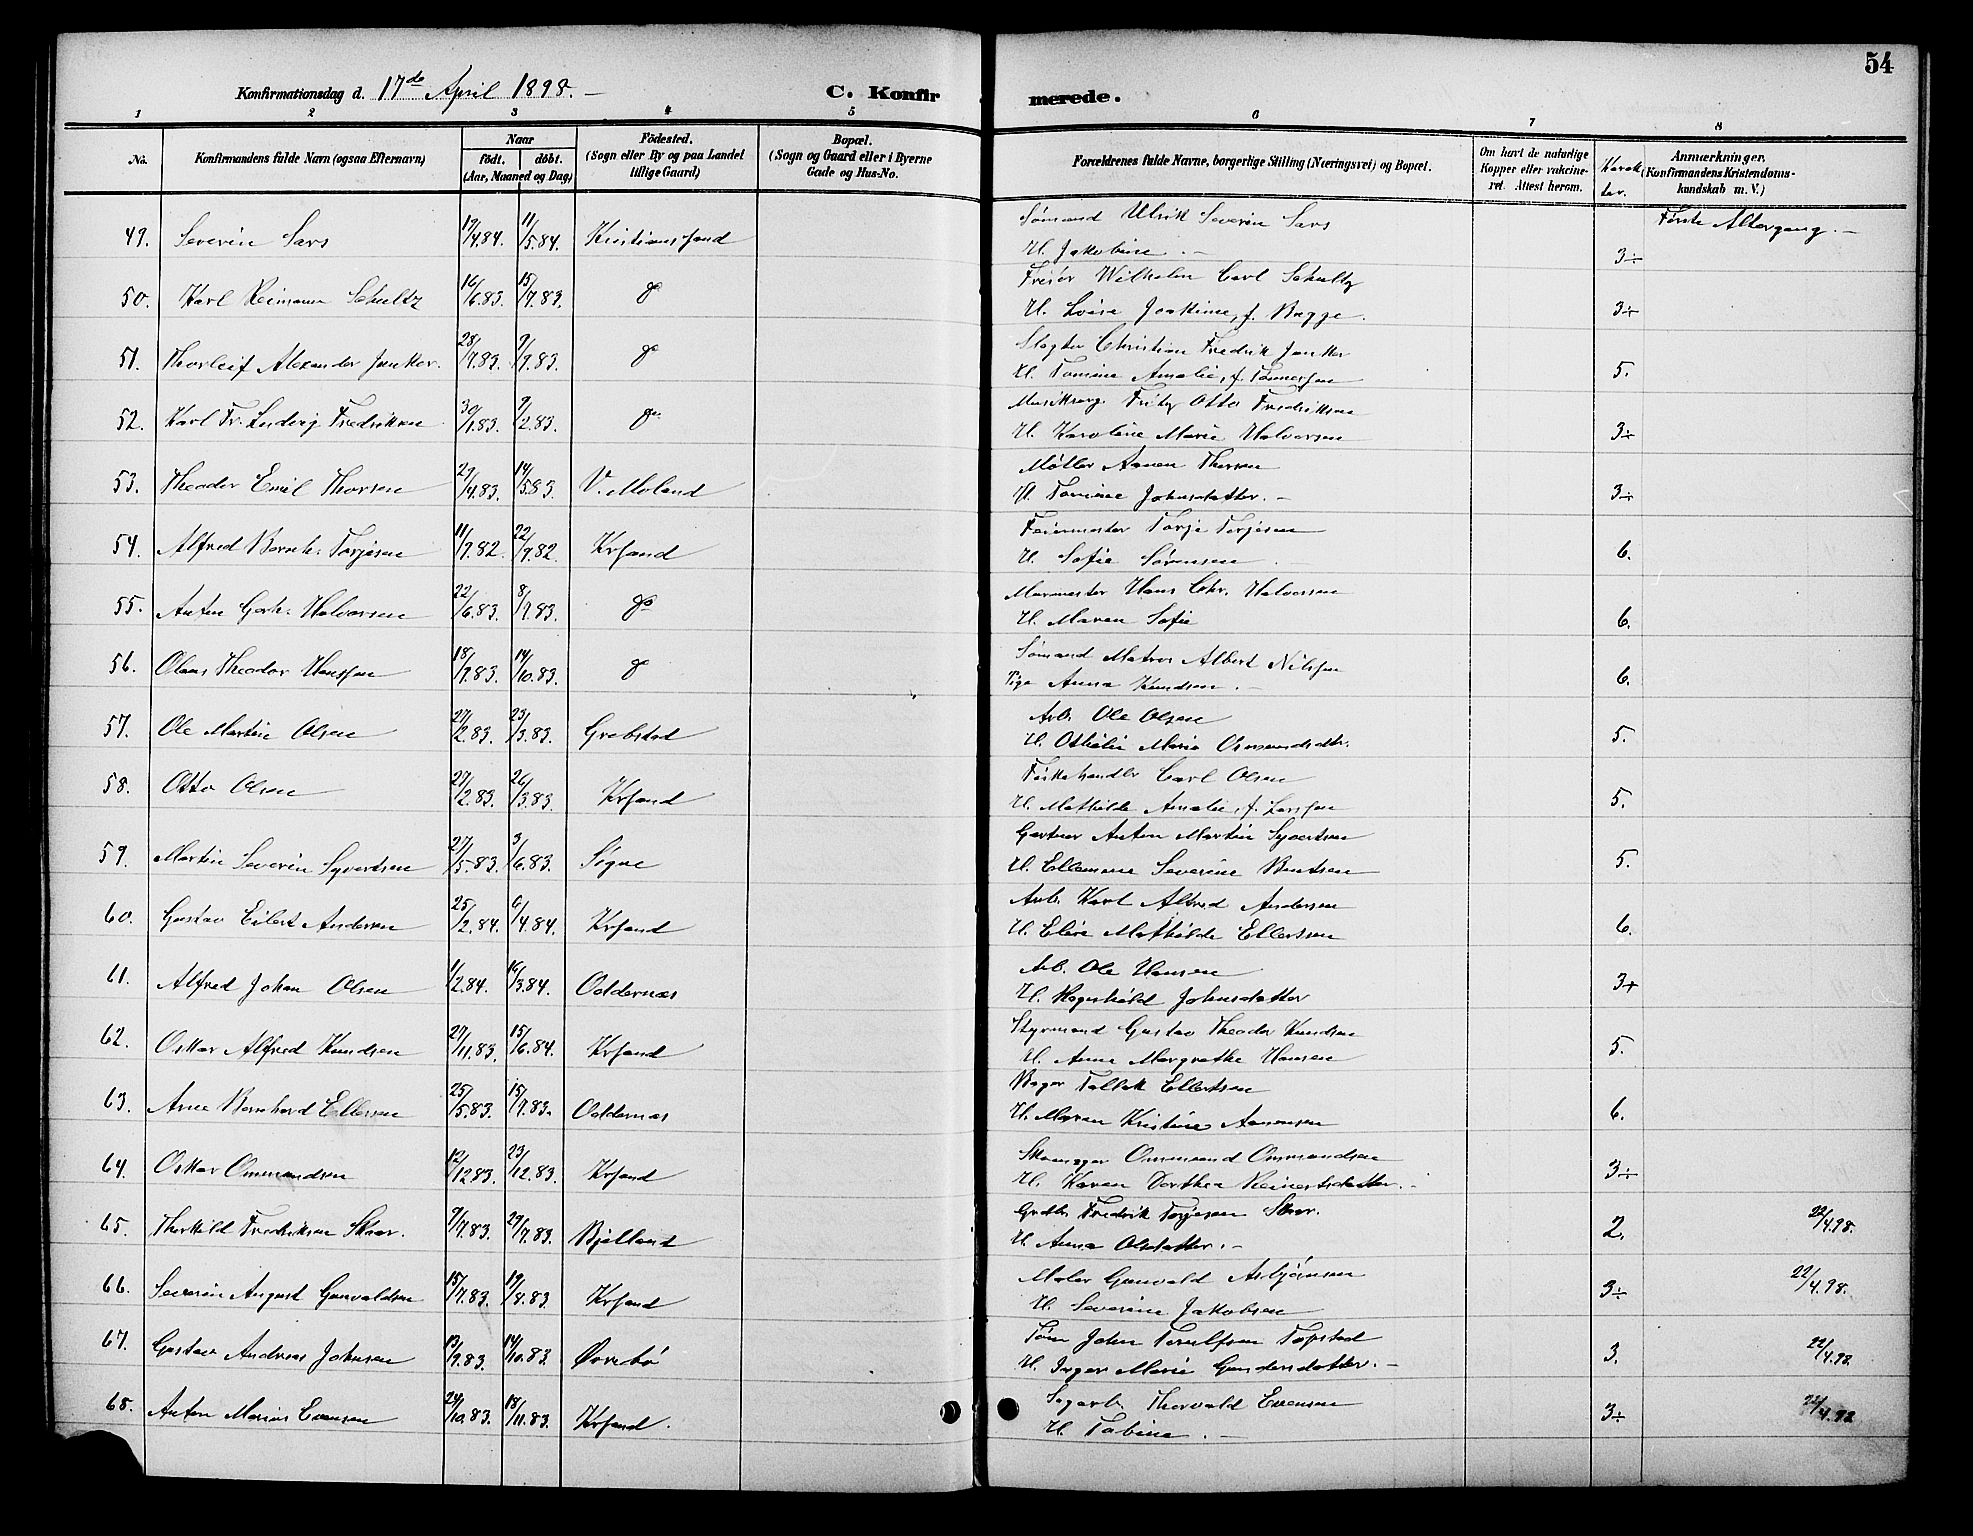 54
Konfirmationsdag d. 17de April 1898. –
C. Konfirmerede.
1 2 3 4 5 6 7 8
No.
Konfirmandens fulde Navn (ogsaa Efternavn)
Naar
født. døbt.
(Aar, Maaned og Dag)
Fødested.
(Sogn eller By og paa Landet
tillige Gaard)
Bopæl.
(Sogn og Gaard eller i Byerne
Gade og Hus-No.
Forældrenes fulde Navne, borgerlige Stilling (Næringsvei) og Bopæl.
Om havt de naturlige
Kopper eller vakcine-
ret. Attest herom.
Karak-
ter.
Anmærkninger.
(Konfirmandens Kristendoms-
kundskab m. V.)
49. Severin Sars 17/4.84. 11/5.84. Kristianssand Sømand Ulrik Severin Sars Første Altergang. –
H. Jakobine. – 3÷
50. Karl Reimann Schultz 16/6.83. 15/7.83. do Frisør Wilhelm Carl Schultz
H. Lovise Joakime, f. Bagge. 3+
51. Thorleif Alexander Junker. 28/7.83. 9/9.83. do Slagter Christian Fredrik Junker
H. Tomine Amalie, f. Tønnessen 5.
52. Karl Fr. Ludvig Fredriksen 30/1.83. 9/2.83. do Fritz Otto Fredriksen
H. Karoline Marie Halvorsen 3÷
53. Theodor Emil Thorsen 27/4.83. 14/5.83. V. Moland Møller Aanen Thorsen
H. Tomine Johnsdatter. – 3÷
54. Alfred Bernh. Torjesen 11/7.82. 22/9.82. Krsand Feiermester Torje Torjesen
H. Sofie Sørensen 6.
55. Anton Gerh. Halvorsen 22/6.83. 8/9.83. do Murmester Hans Chr. Halvorsen
H. Maren Sofie 6.
56. Olaus Theodor Hanssen 18/9.83. 14/10.83. do Sømand Matros Albert Nilssen
Pige Anna Knudsen. – 6.
57. Ole Martin Olsen 27/2.83. 23/3.83. Grebstad Arb. Ole Olsen
H. Othilie Marie Osmundsdtr. 5.
58. Otto Olsen 27/2.83. 26/3.83. Krsand Fiskehandler Carl Olsen
H. Mathilde Amalie, f. Larssen 5.
59. Martin Severin Syvertsen 27/5.83. 3/6.83. Søgne Gartner Anton Martin Syvertsen
H. Ellemine Severine Bentsen 5.
60. Gustav Eilert Andersen 25/2.84. 6/4.84. Krsand Arb. Karl Alfred Andersen
H. Elise Mathilde Ellertsen 6.
61. Alfred Johan Olsen 1/2.84. 16/3.84. Oddernæs Arb. Ole Hansen
H. Johnsdatter 3+
62. Oskar Alfred Knudsen 27/11.83. 15/6.84. Krsand Styrmand Gustav Theodor Knudsen
H. Anne Margrethe Hansen 5.
63. Arne Bernhard Ellersen 25/5.83. 15/7.83. Oddernæs Bager Tallak Ellertsen
H. Maren Kristine Aanensen 6.
64. Oskar Ommundsen 12/12.83. 23/12.83. Krsand Skomager Ommund Ommundsen
H. Karen Dorthea Reinertsdatter. – 3÷
65. Therkild Fredriksen Skaar. 9/7.83. 29/7.83. Bjelland Grdbr. Fredrik Torjesen Skaar.
H. Anna Olsdatter. – 2. 22/4.98.
66. Severin August Gunvaldsen 15/7.83. 19/8.83. Krsand Maler Gunvald Asbjørnsen
H. Severine Jakobsen 3÷ 22/4.98.
67. Gustav Andreas Johnsen 13/9.83. 14/10.83. Øvrebø Tøm. John Tepstad
H. Inger Marie Gundersdatter. – 3. 22/4.98.
68. Anton Marius Evensen 24/10.83. 18/11.83. Krsand. Sagarb. Thorvald Evensen
H. Tobine. – 3÷ 22/4.98